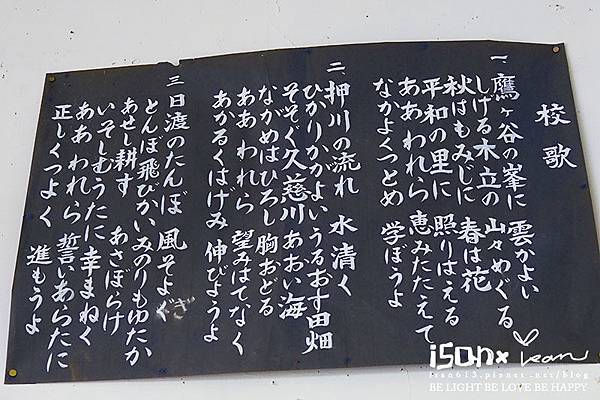 校歌
一 鷹ヶ谷の峯に 雲かよい
しげる木立の 山々めぐる
秋はもみじに 春は花
平和の里に 照りはえる
ああわれら 恵みたたえて
なかよくつとめ 学ぼうよ
二 押川の流れ 水清く
ひかりかがよい うるおす田畑
そそぐ久慈川 あおい海
ながめはひろし 胸おどる
ああわれら 望みはてなく
あかるくはげみ 伸びようよ
三 日渡のたんぼ 風そよぎ
とんぼ飛びかい みのりもゆたか
あせし耕す あさぼらけ
いそしむうたに 幸まねく
ああわれら 誓いあらたに
正しくつよく 進もうよ
BE LIGHT BE LOVE BE HAPPY